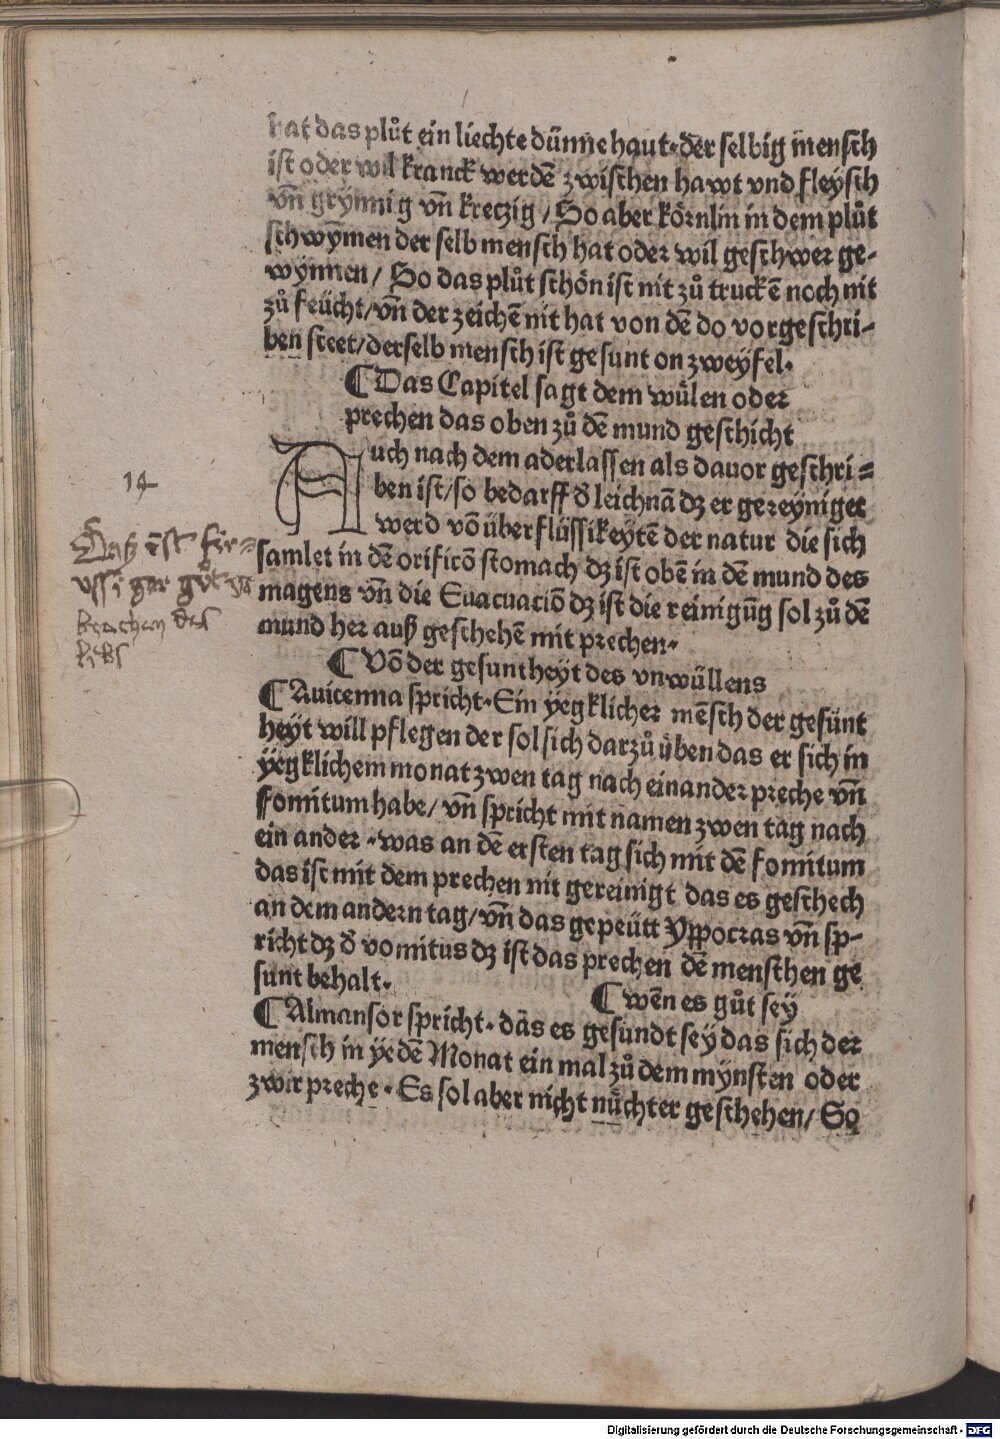 hat das plůt ein liechte dünne haut. der selbig mensch
ist oder wil kranck werdē zwischen hawt vnd fleÿsch
vn̄ grÿnnig vn̄ kretzig / So aber körnlin in dem plůt
schwȳmen der selb mensch hat oder wil geschwer ge-
wÿnnen / So das plůt schön ist nit zů truckē noch nit
zů feücht / vn̄ der zeichē nit hat von dē do vorgeschri-
ben steet / derselb mensch ist gesunt on zweÿfel.
¶ Das Capitel sagt dem wůlen oder
prechen das oben zů dē mund geschicht
Auch nach dem aderlassen als dauor geschri=
ben ist / so bedarff d̕ leichnā dz er gereÿniget
werd vō überflüssikeÿtē der natur die sich
samlet in dē orificō stomach dz ist obē in dē mund des
magens vn̄ die Euacuaciō dz ist die reinigūg sol zů dē
mund her auß geschehē mit prechen.
¶ Vō der gesuntheÿt des vnwüllens
¶ Auicenna spricht. Ein ÿegklicher mēsch der gesünt
heÿt will pflegen der sol sich darzů üben das er sich in
ÿegklichem monat zwen tag nach einander preche vn̄
ffomitum habe / vn̄ spricht mit namen zwen tag nach
ein ander. was an dē ersten tag sich mit dē fomitum
das ist mit dem prechen nit gereinigt das es geschech
an dem andern tag / vn̄ das gepeütt Yppocras vn̄ sp-
richt dz d̕ vomitus dz ist das prechen dē menschen ge
sunt behalt.
¶ wēn es gůt seÿ
¶ Almansor spricht. das es gesundt seÿ das sich der
mensch in ÿedē Monat ein mal zů dem mÿnsten oder
zwir preche. Es sol aber nicht nůchter geschehen / So
14
gar gůt
Digitalisierung gefördert durch die Deutsche Forschungsgemeinschaft - DFG